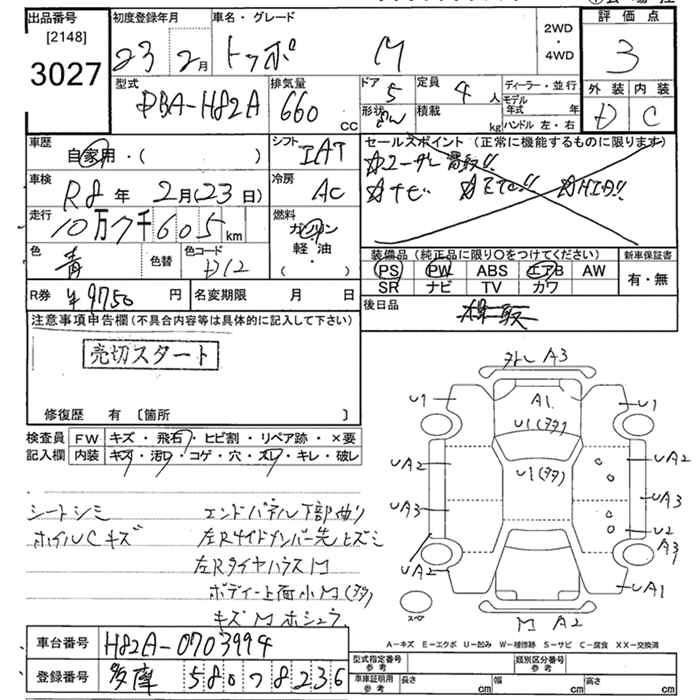 出品番号 初度登録年月 車名・グレード 2WD・4WD 評価点
[2148]
3027 23年 2月 トッポ M 3
型式 排気量 ドア 定員 ディーラー・並行 外装 内装
DBA-H82A 660 cc 5 4人 モデル年式 年 D C
形状 積載 kg ハンドル 左・右
車歴 自家用・( ) シフト IAT セールスポイント(正常に機能するものに限ります)
☆ユーザー買取!!
車検 R8年 2月(23日) 冷房 AC ☆ナビ ☆ETC!! ☆HID!!
走行 10万7千605km 燃料 ガソリン
軽・油
( ・ )
色 青 色替 色コード D12 装備品(純正品に限り○をつけてください) 新車保証書
PS PW ABS エアB AW 有・無
SR ナビ TV カワ
R券 ¥9750円 名変期限 月 日 後日品
注意事項申告欄(不具合内容等は具体的に記入して下さい)
売切スタート
修復歴 有 〔箇所 〕
検査員 FW キズ・飛石・ヒビ割・リペア跡・×要
記入欄 内装 キズ・汚レ・コゲ・穴・スレ・キレ・破レ
シートシミ エンドパネル下部曲り
ホイルCキズ 左Rサイドメンバー先ヒズミ
左RタイヤハウスM
ボディー上面小M(多々)
キズMホシュウ
外レ A3
U1 A1 U1
U1(多々)
UA2 U1(多々) UA2
UA3 UA3
U2
UA2 A3
UA1
スペア M A2
A-キズ E-エクボ U-凹み W-補修跡 S-サビ C-腐食 XX-交換済
車台番号 H82A-0703994
登録番号 多摩 580 ア 8236
型式指定番号 参考 類別区分番号 参考
車体証明用 参考 長さ cm 幅 cm 高さ cm